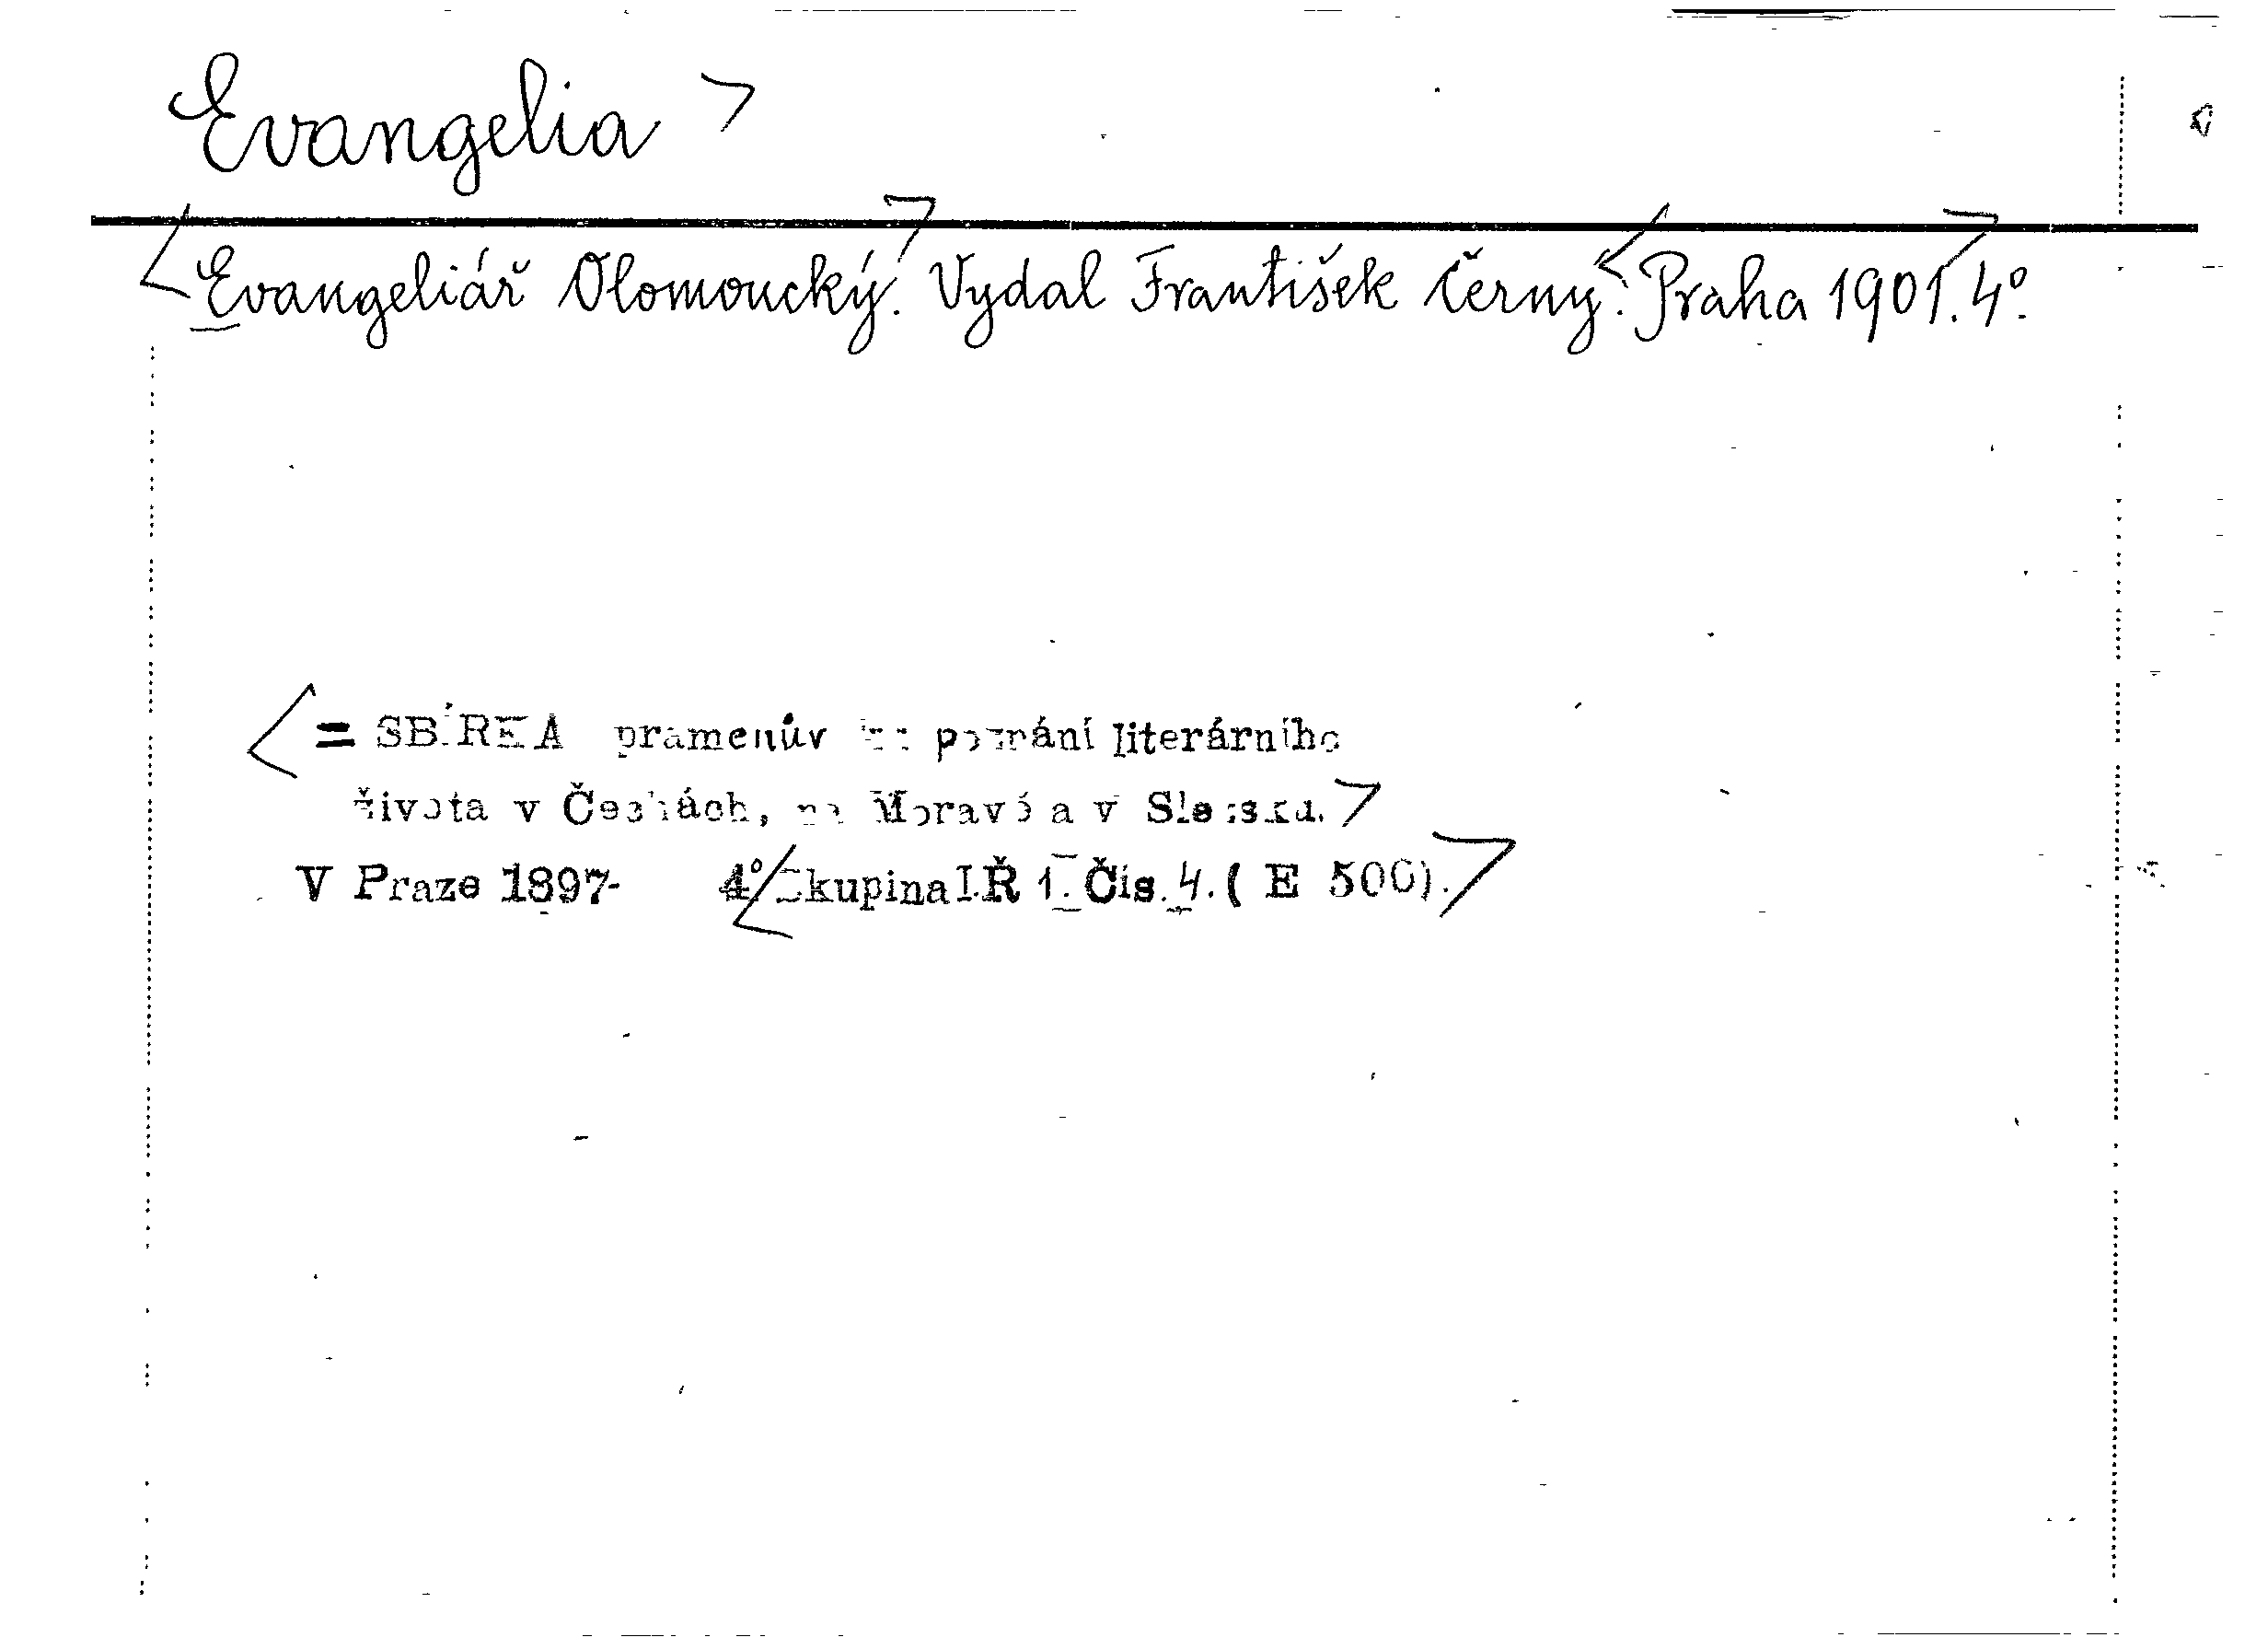 Evangelia >
< Evangeliář Olomoucký. > Vydal František Černy. < Praha 1901. > 4°.
< = SBÍRKA pramenův ku poznání literárního
života v Čechách, na Moravě a v Slezsku. >
V Praze 1897- 4°. < Skupina I. Ř 1. Čís. 4. ( E 500). >